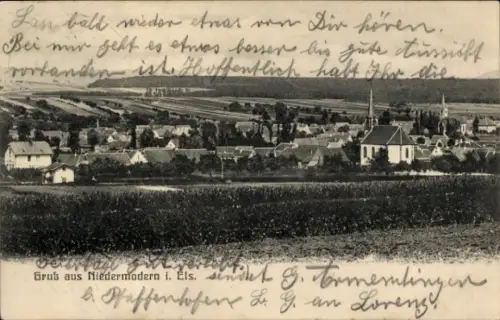 Lass bald wieder etwas von Dir hören.
Bei mir geht es etwas besser bis gute aussicht
vorhanden ist. Hoffentlich habt Ihr die
gut verlebt
Gruß aus Niedermodern i. Els.
sendet G.
b. Pfaffenhofen U. E. G. an Lorenz.